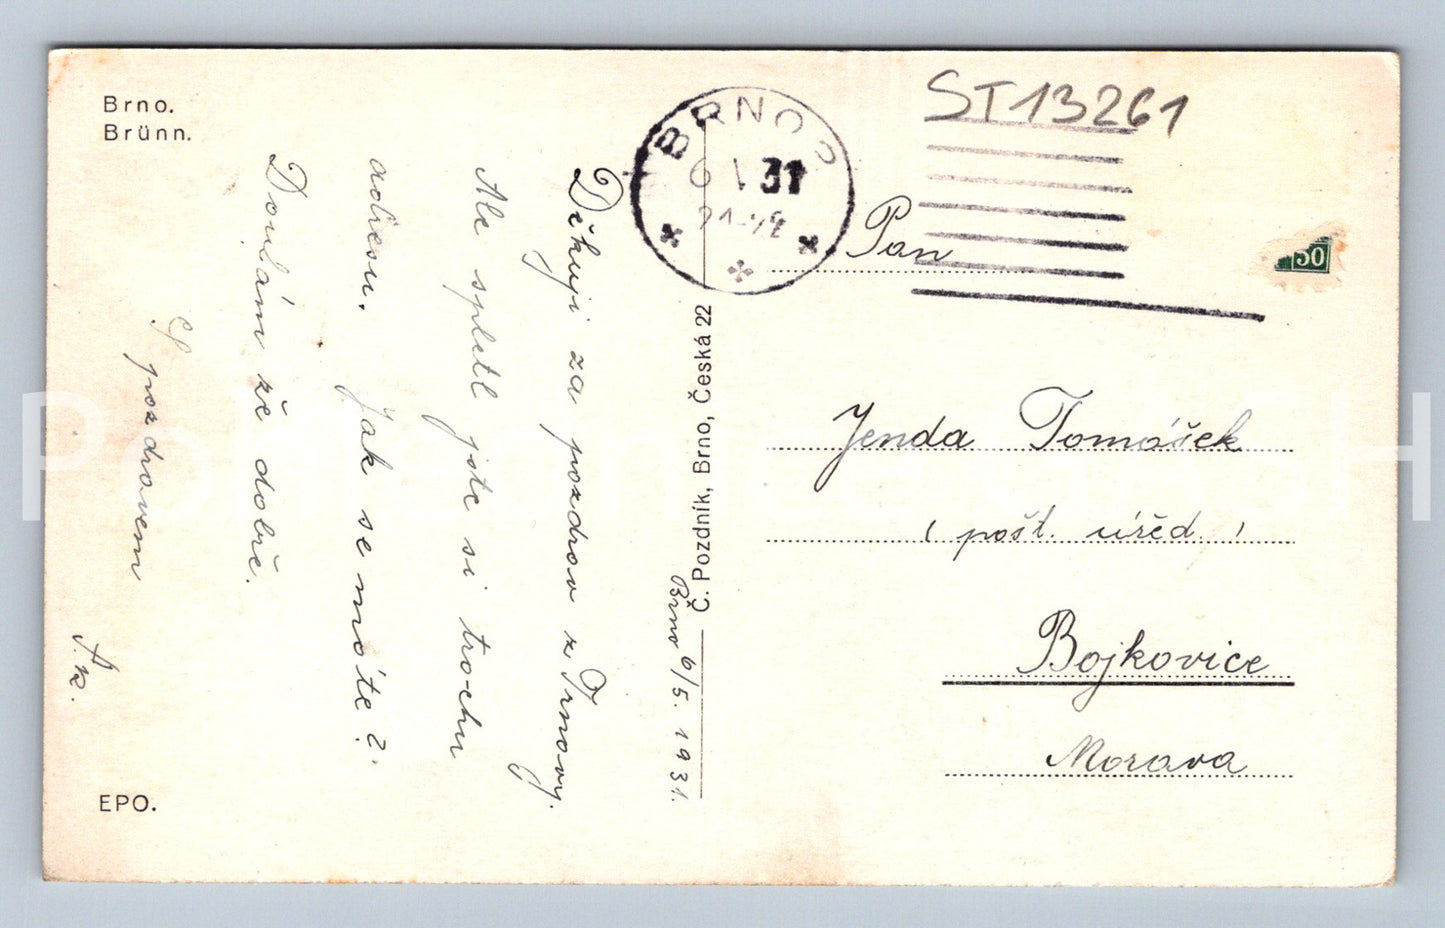 Brno.
Brünn.
Děkuji za pozdrav z Trnovy.
Ale spletl jste si trochu
adresu. Jak se máte?
Doufám že dobře.
S pozdravem
EPO.
Č. Pozdník, Brno, Česká 22
Brno 6/5. 1931.
BRNO 2
6 V 31
ST13261
50
Pan
Jenda Tomášek
( pošt. úřed. )
Bojkovice
Morava